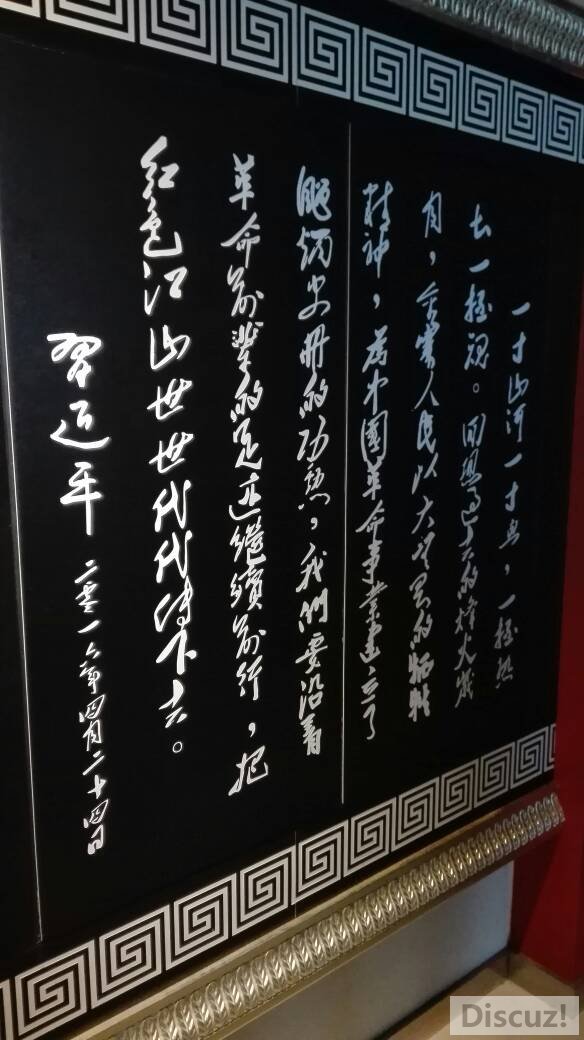 一寸山河一寸血，一抔热
土一抔魂。回想過去的烽火岁
月，金寨人民以大无畏的牺牲
精神，為中國革命事業建立了
彪炳史册的功勲，我們要沿着
革命前輩的足迹繼續前行，把
红色江山世世代代傳下去。
習近平 二零一六年四月二十四日
Discuz!